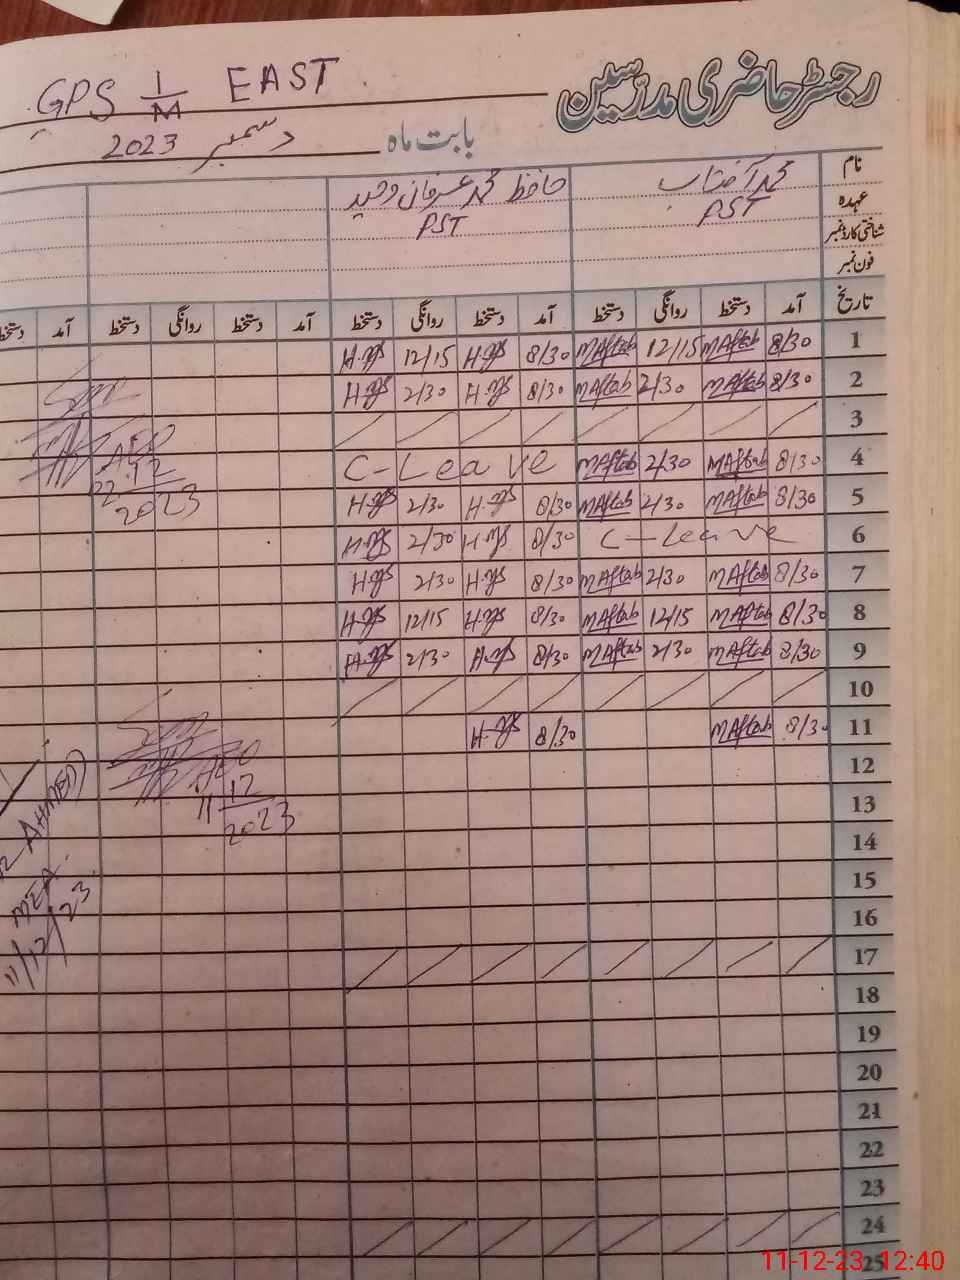 رجسٹر حاضری مدرسین
GPS 1/M EAST
بابت ماہ دسمبر 2023
نام محمد آفتاب حافظ محمد عرفان وحید
عہدہ PST PST
شناختی کارڈ نمبر
فون نمبر
تاریخ آمد دستخط روانگی دستخط آمد دستخط روانگی دستخط آمد دستخط روانگی دستخط آمد دستخط
1 8/30 MAftab 12/15 MAftab 8/30 12/15
2 8/30 MAftab 2/30 MAftab 8/30 2/30
3
4 8/30 MAftab 2/30 MAftab C-Leave
5 8/30 MAftab 2/30 MAftab 8/30 2/30
6 C-Leave 8/30 2/30
7 8/30 MAftab 2/30 MAftab 8/30 2/30
8 8/30 MAftab 12/15 MAftab 8/30 12/15
9 8/30 MAftab 2/30 MAftab 8/30 2/30
10
11 8/30 MAftab 8/30
12
13
14
15
16
17
18
19
20
21
22
23
24
25
AEO
12
2023
AEO
11 12
2023
AHMED)
MEA
11/12/23
11-12-23 12:40